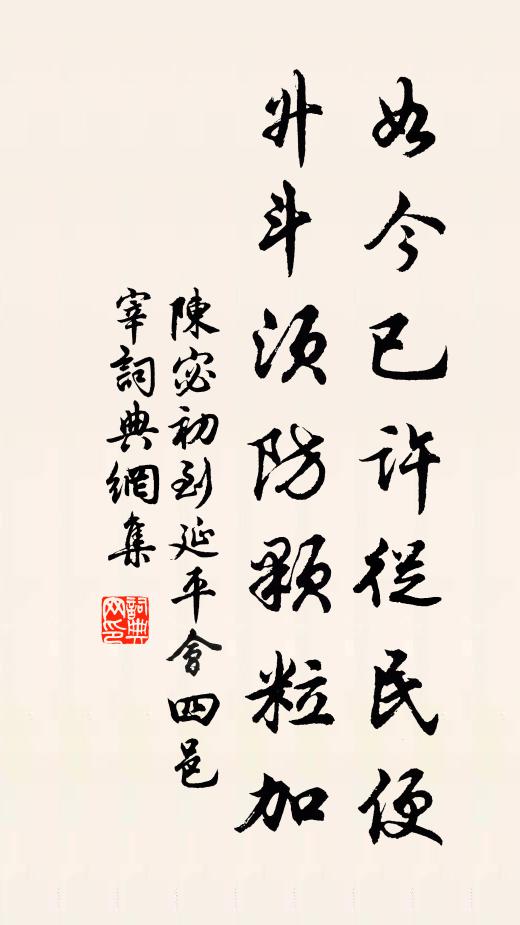 如今已許從民便
升斗須防顆粒加
陳宓初到延平會四邑
宰詞典網集
詞典
网印